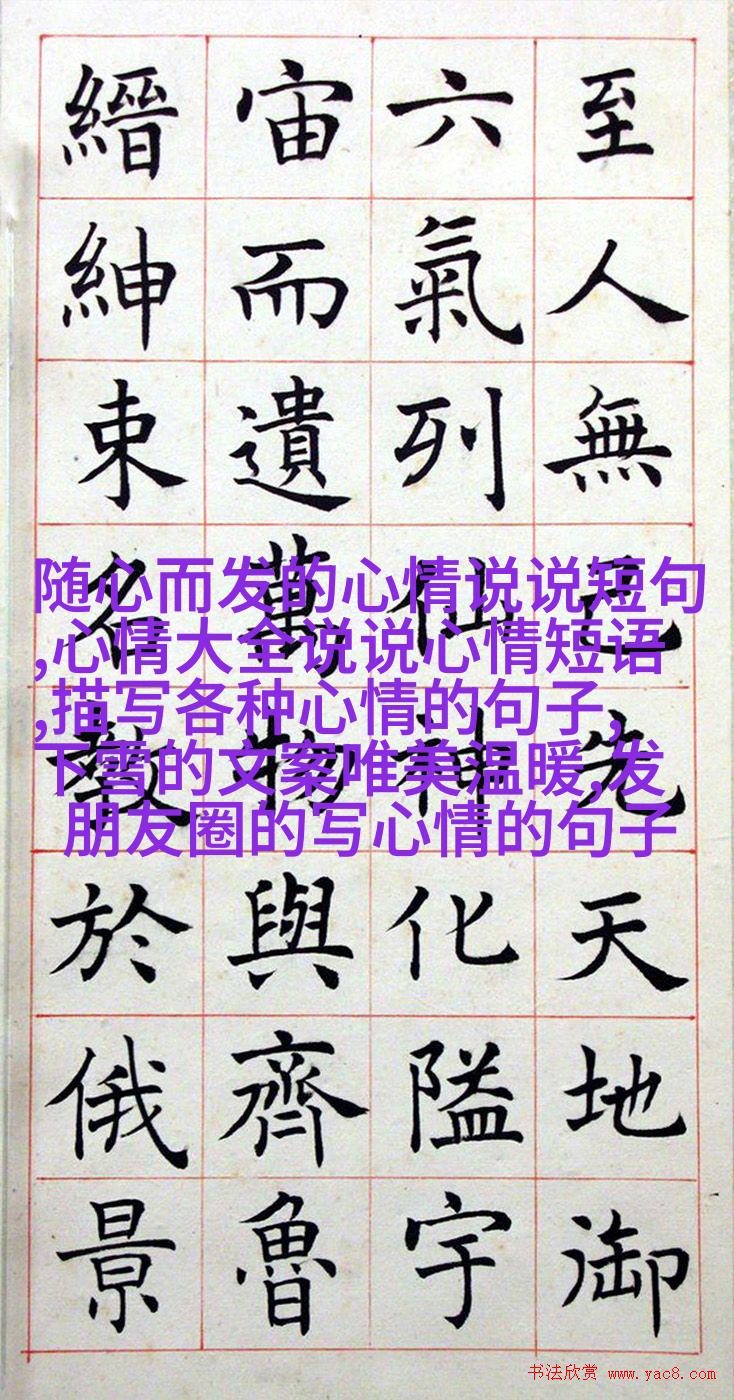 至人無己先天地御
六氣列仙神化隘宇
宙而遺萬物與齊魯
縉紳束名教於俄景
随心而发的心情说说短句
,心情大全说说心情短语
,描写各种心情的句子,
下雪的文案唯美温暖,发
朋友圈的写心情的句子
书法欣赏 www.yac8.com